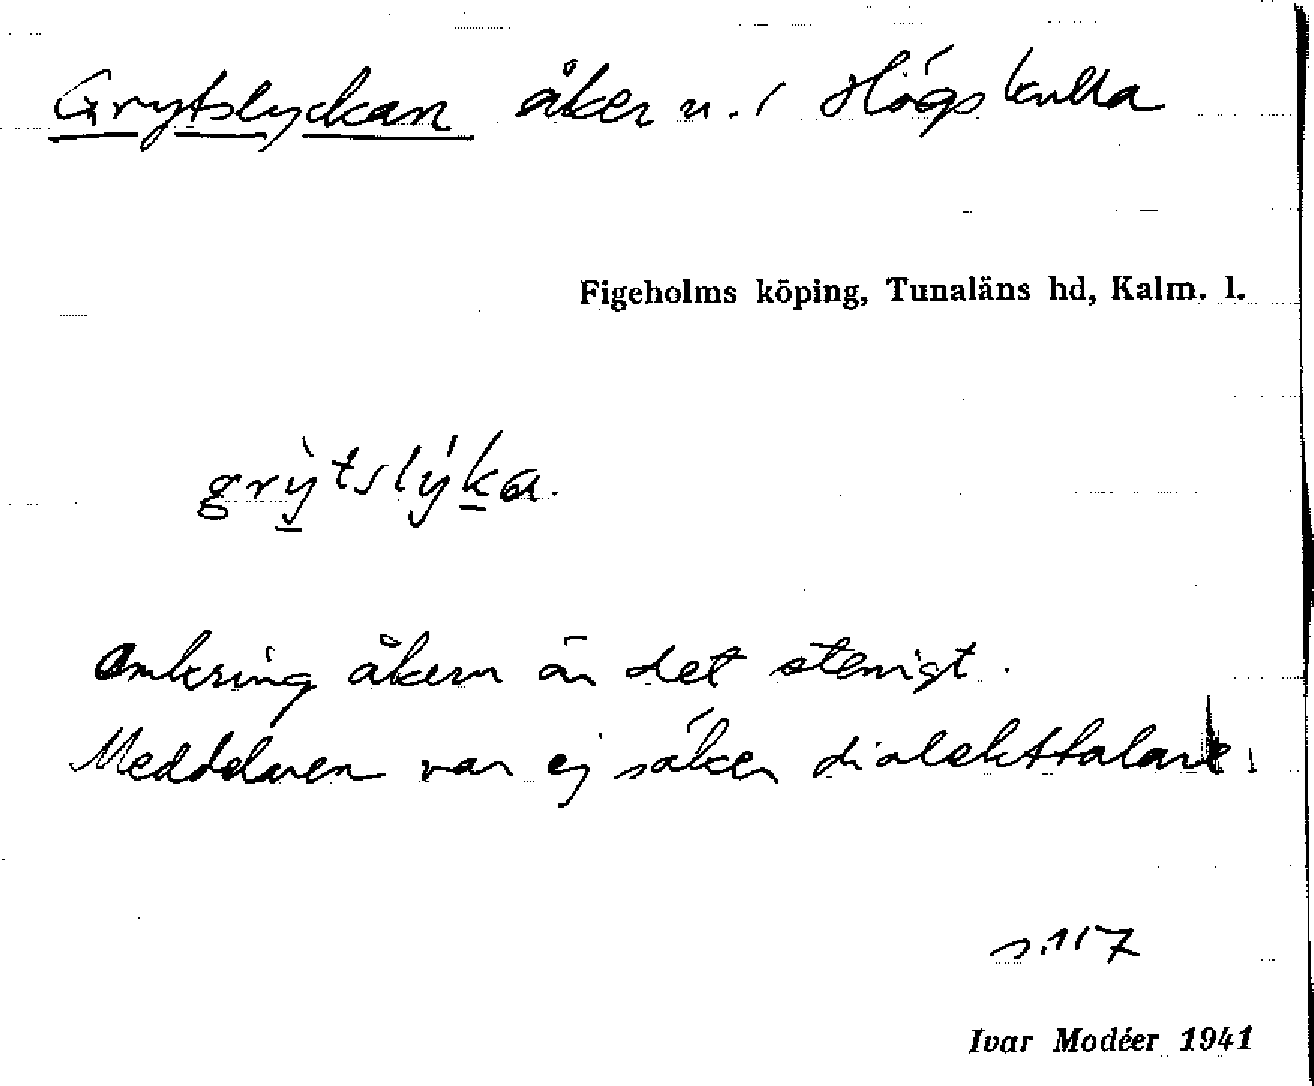 Grytslyckan åker n. i Högskulla
Figeholms köping, Tunaläns hd, Kalm. l.
grỳtslýka.
Omkring åkern är det stenigt.
Meddelaren var ej säker dialekttalare.
s. 117
Ivar Modéer 1941